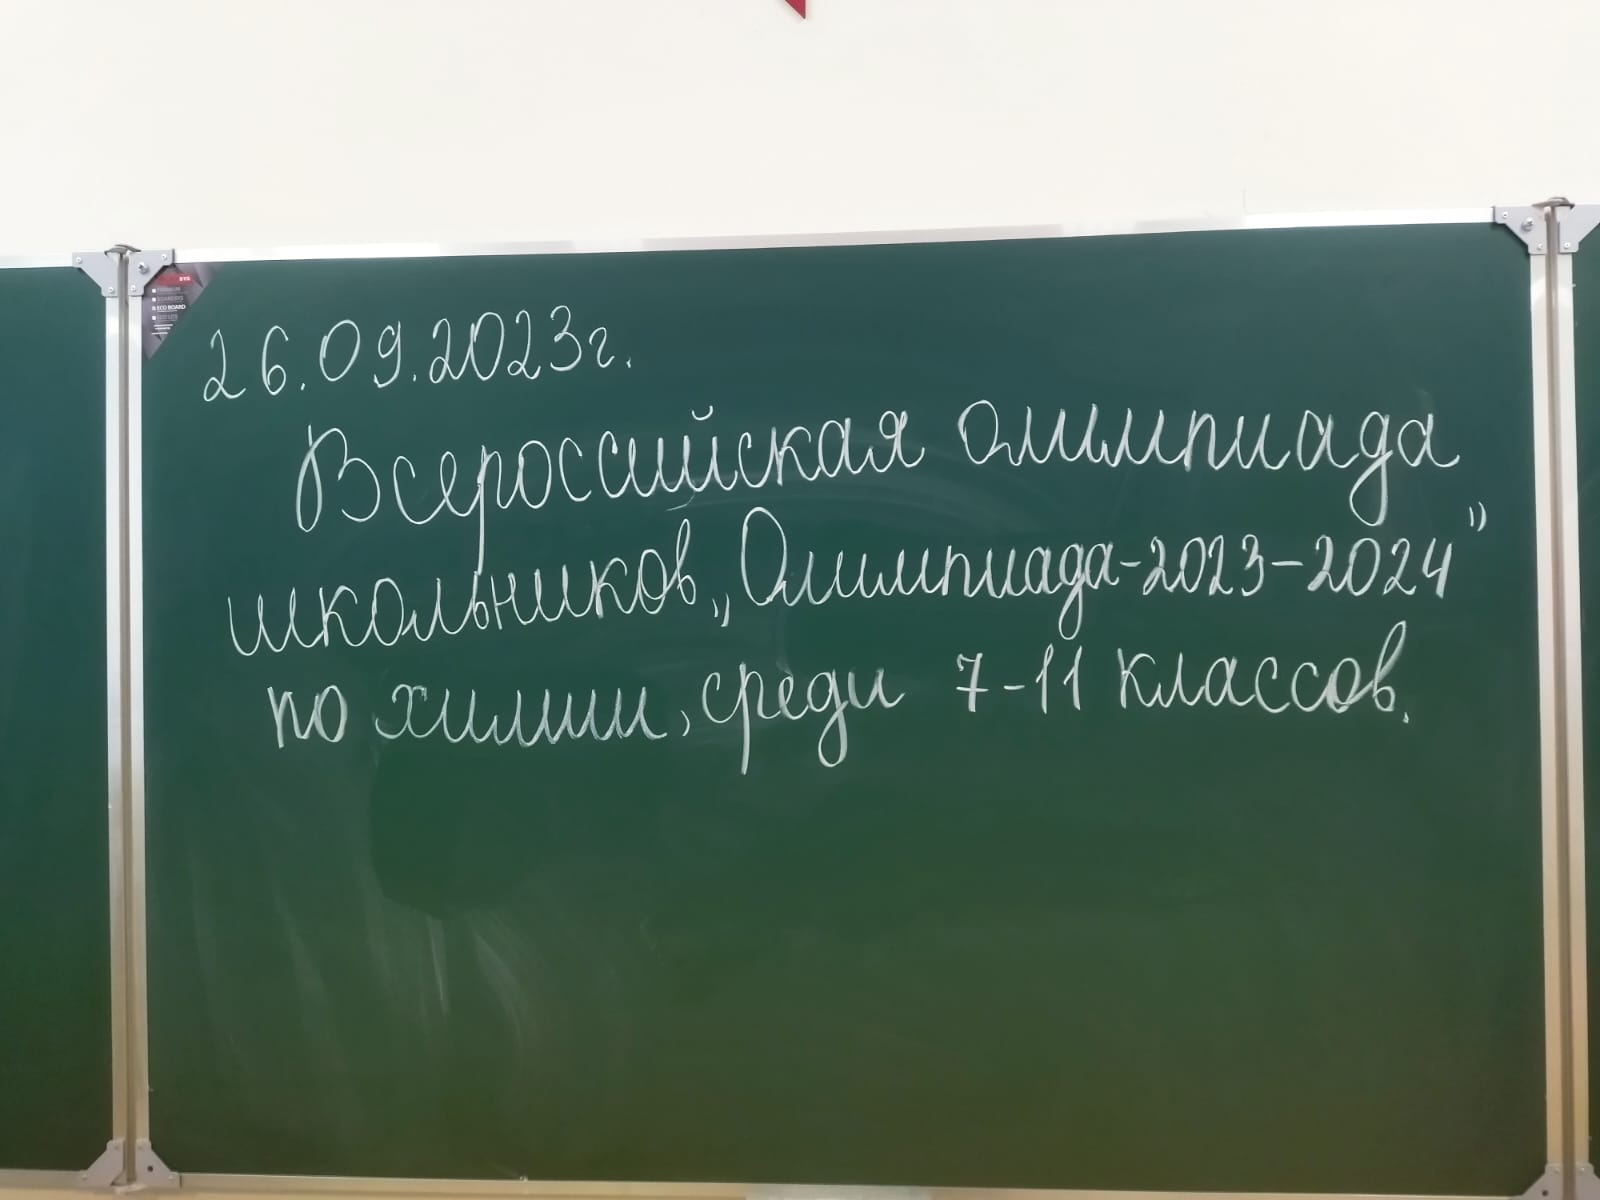 26.09.2023г.
Всероссийская олимпиада
школьников „Олимпиада-2023-2024"
по химии, среди 7-11 классов.
ECO BOARD